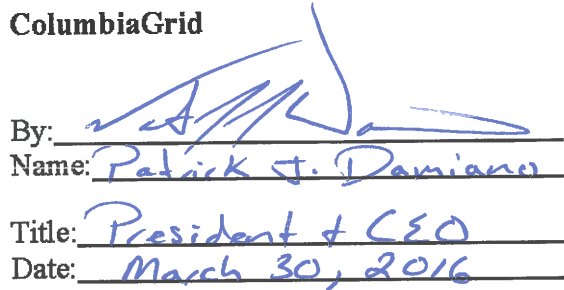 ColumbiaGrid
By:
Name: Patrick J. Damiano
Title: President & CEO
Date: March 30, 2016